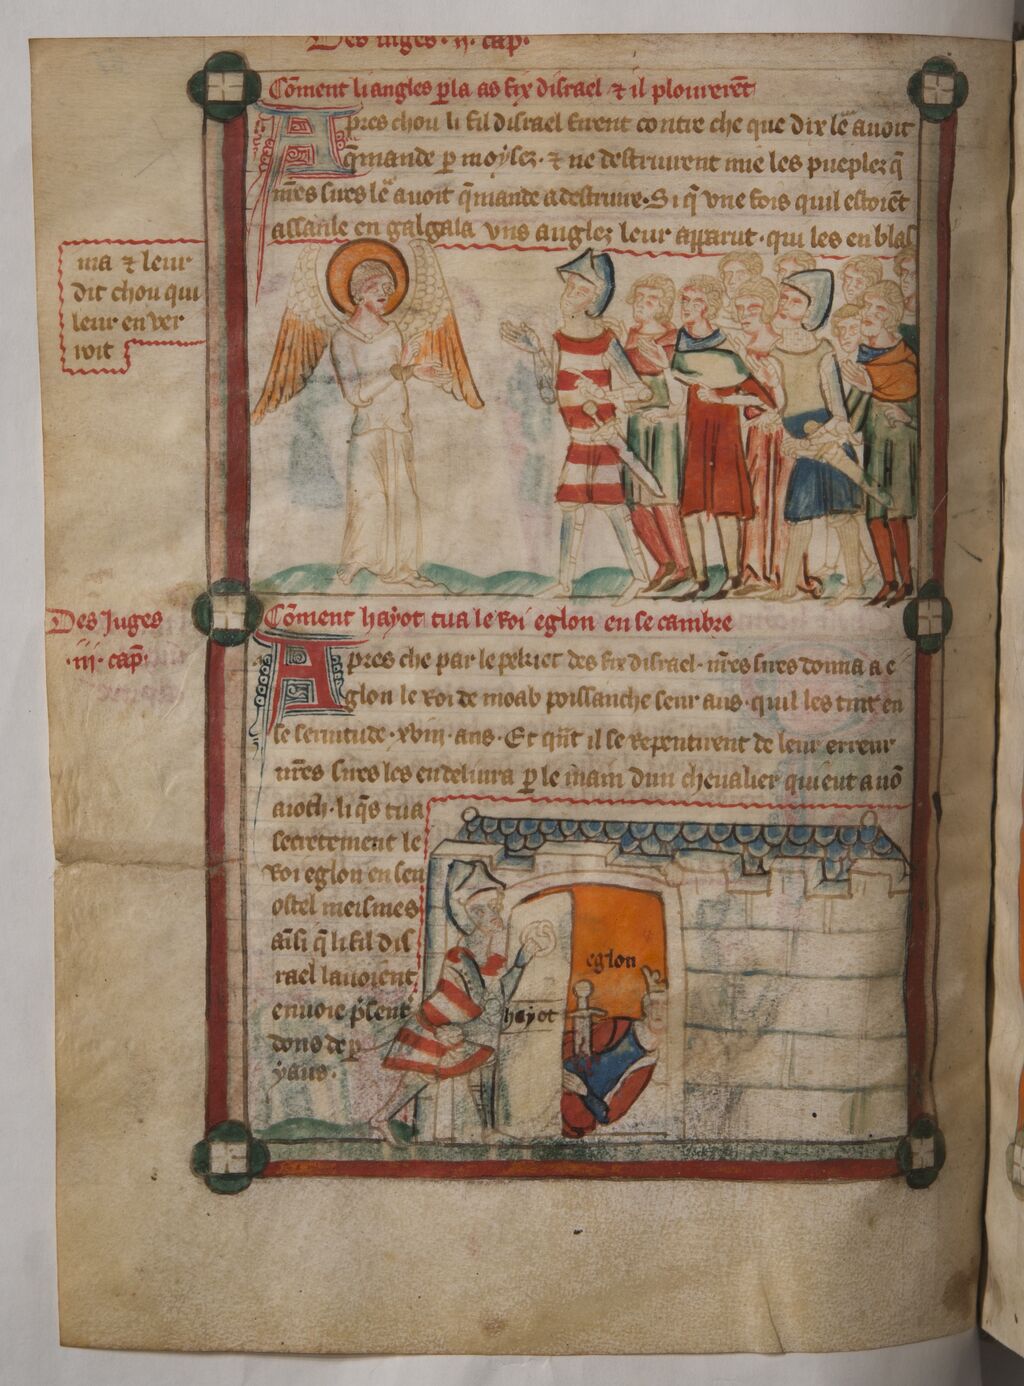 Des iuges · ii · cap̃ ·
Cõment li angles p̱la as fix disrael ⁊ il plouverẽt
Apres chou li fil disrael furent contre che que dix le᷑ auoit
q̃mande p̱ moysez · ⁊ ne destruirent mie les pueplez q̃
nr̃es sires le᷑ auoit q̃mande a destruire · Si q̃ vne fois quil estoiẽt
assanle en galgala vns anglez leur apparut · qui les en blas
ma ⁊ leur
dit chou qui
leur en ver
roit
Des Iuges
· iii · cap̃ ·
Cõment hayot tua le roi eglon en se cambre
Apres che par le pekiet des fix disrael · nr̃es sires donna a e
glon le roi de moab poissanche seur aus · quil les tint en
se seruitude · xviii · ans · Et qñt il se repentirent de leur erreur
nr̃es sires les en deliura p̱ le main dun cheualier qui eut a nõ
aioth · li q̃s tua
secretement le
roi eglon en seu
ostel meismes
aĩsi q̃ li fil dis
rael lauoient
enuoie p̃sent᷑
dons de p̱
yaus ·
eglon
hayot